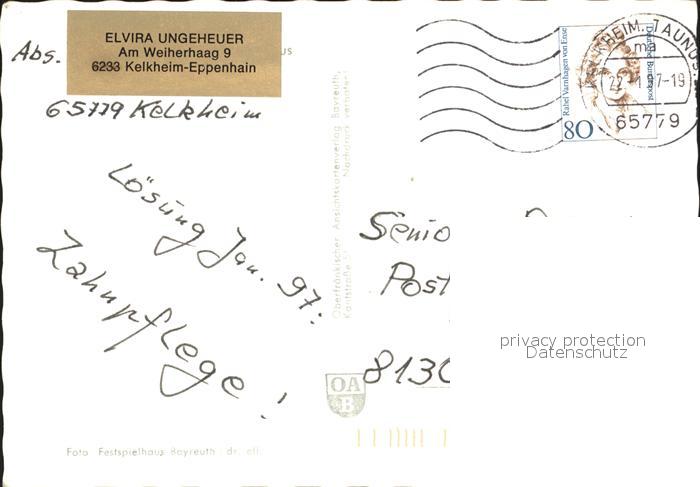 Abs.
ELVIRA UNGEHEUER
Am Weiherhaag 9
6233 Kelkheim-Eppenhain
65779 Kelkheim
Lösung Jan. 97:
Zahnpflege!
Oberfränkischer Ansichtskartenverlag Bayreuth,
Kantstraße
Nachdruck verboten
OA
B
Foto Festspielhaus Bayreuth: dr. efl.
Rahel Varnhagen von Ense
Deutsche Bundespost
80
KELKHEIM, TAUNUS
ma
97-19
65779
Senio
Post
8130
privacy protection
Datenschutz